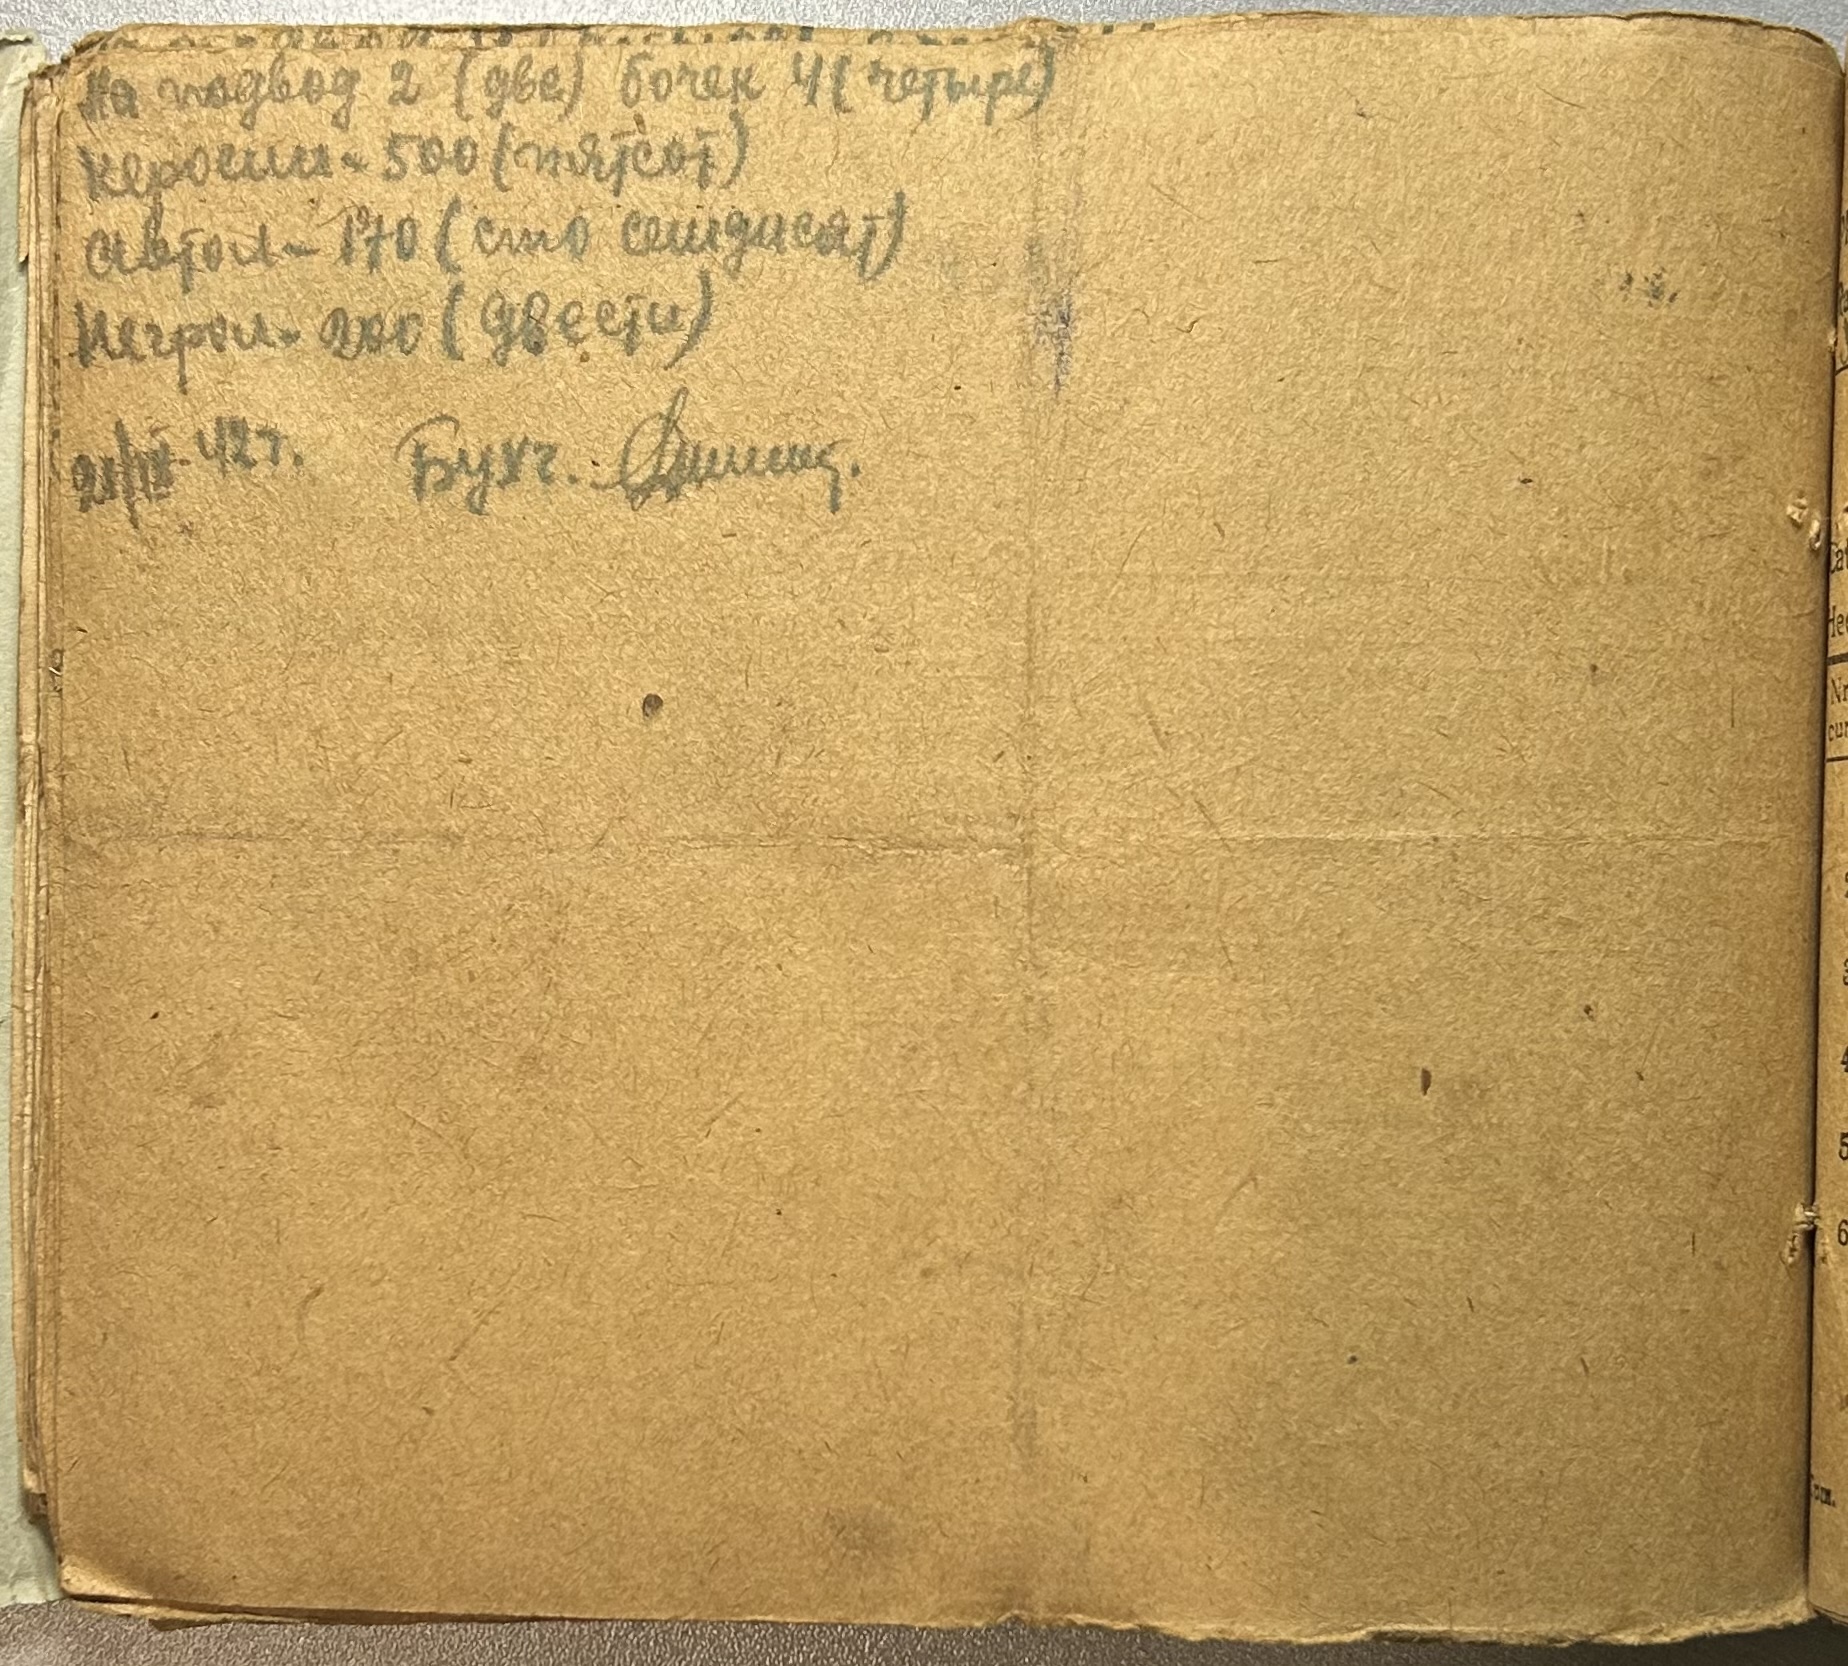 На подвод 2 (две) бочек 4 (четыре)
Керосин - 500 (пятсот)
Автол - 170 (сто семдисят)
Негрол - 200 (двести)
42 г. Бухг.
4
5
6